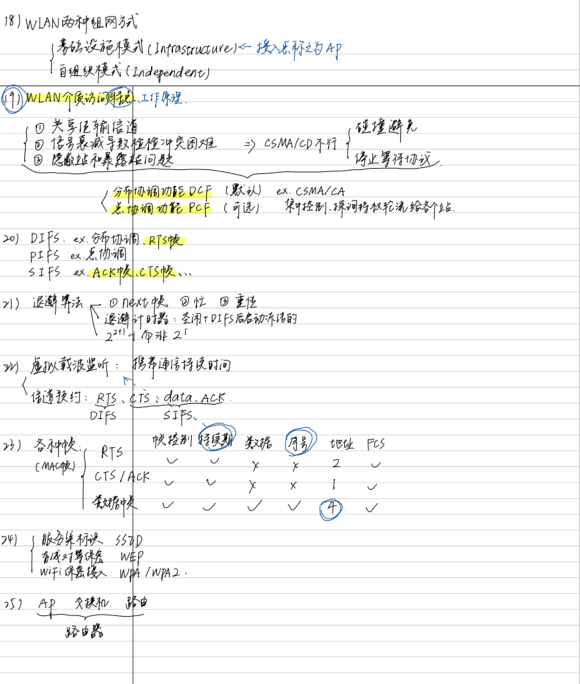 18) WLAN两种组网方式
基础设施模式(Infrastructure) ← 接入点称之为AP
自组织模式(Independent)
19) WLAN介质访问特点、工作原理.
① 共享传输信道
② 信号衰减导致检检冲突困难 ⇒ CSMA/CD不行 碰撞避免
③ 隐蔽站和暴露站问题 停止等待协议
分布协调功能 DCF (默认) ex. CSMA/CA
点协调功能 PCF (可选) 集中控制、探询将权轮流给各个站
20) DIFS. ex. 分布协调、RTS帧
PIFS ex. 点协调
SIFS ex. ACK帧、CTS帧、...
21) 退避算法 ① next帧 ② 忙 ③ 重传
退避计时器:空闲+DIFS后启动冻结的
2²⁺ⁱ 个而非 2ⁱ
22) 虚拟载波监听: 携带通信持续时间
信道预约: RTS、CTS、data、ACK.
DIFS SIFS
23) 各种帧 帧控制 持续期 数据 序号 地址 FCS
(MAC帧) RTS ✓ ✓ × × 2 ✓
CTS/ACK ✓ ✓ × × 1 ✓
数据帧 ✓ ✓ ✓ ✓ 4 ✓
24) 服务集标识 SSID
有线对等保密 WEP
WiFi保密接入 WPA/WPA2.
25) AP 交换机 路由
路由器